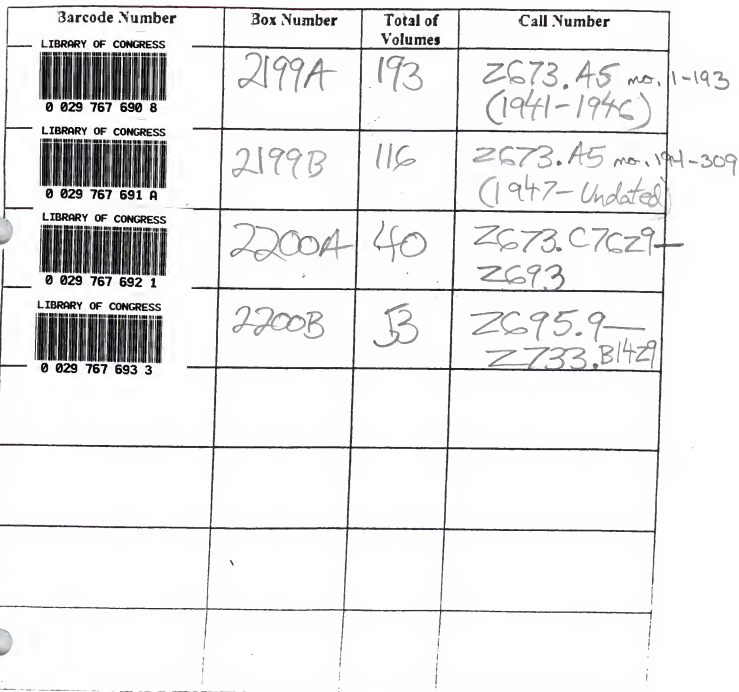 Barcode Number Box Number Total of Volumes Call Number
LIBRARY OF CONGRESS
0 029 767 690 8
2199A 193 Z673.A5 no. 1-193
(1941-1946)
LIBRARY OF CONGRESS
0 029 767 691 A
2199B 116 Z673.A5 no. 194-309
(1947-Undated)
LIBRARY OF CONGRESS
0 029 767 692 1
2200A 40 Z673.C76Z9—
Z693
LIBRARY OF CONGRESS
0 029 767 693 3
2200B 53 Z695.9—
Z733.B14Z9